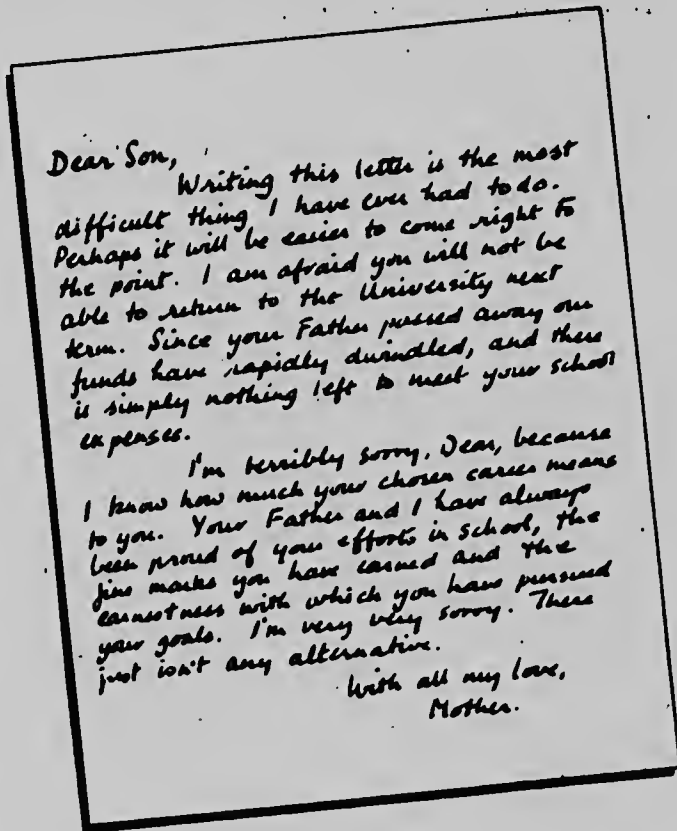 Dear Son,
Writing this letter is the most
difficult thing I have ever had to do.
Perhaps it will be easier to come right to
the point. I am afraid you will not be
able to return to the University next
term. Since your Father passed away our
funds have rapidly dwindled, and there
is simply nothing left to meet your school
expenses.
I'm terribly sorry, Dear, because
I know how much your chosen career means
to you. Your Father and I have always
been proud of your efforts in school, the
fine marks you have earned and the
earnestness with which you have pursued
your goals. I'm very very sorry. There
just isn't any alternative.
With all my love,
Mother.